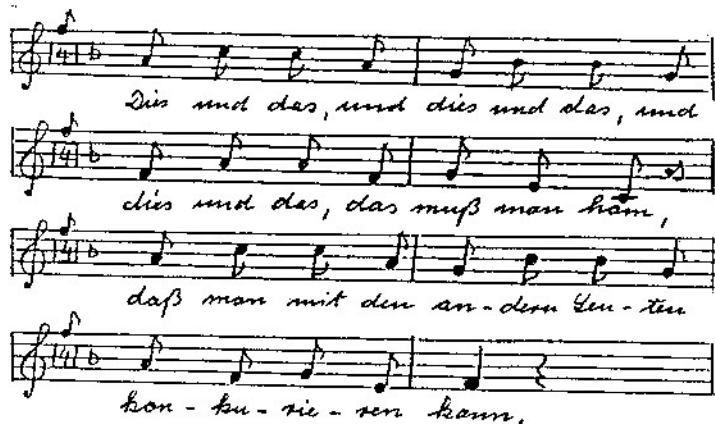 Dies und das, und dies und das, und
dies und das, das muß man ham,
daß man mit den an-dern Leu-ten
kon-ku-rie-ren kann.